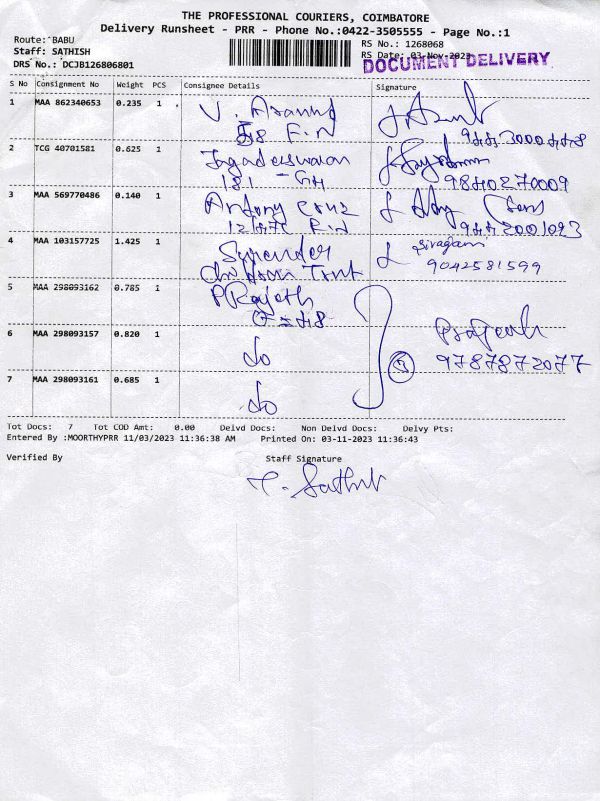 THE PROFESSIONAL COURIERS, COIMBATORE
Delivery Runsheet - PRR - Phone No.:0422-3505555 - Page No.:1
Route: BABU
RS No.: 1268068
Staff: SATHISH
RS Date: 03-Nov-2023
DOCUMENT DELIVERY
DRS No.: DCJB126806801
S No Consignment No Weight PCS Consignee Details Signature
1 MAA 862340653 0.235 1 V. Aravind
2 TCG 40701581 0.625 1 Jagadeswaran
181 - GH 9840270009
3 MAA 569770486 0.140 1 Antony Cruz
4 MAA 103157725 1.425 1 Surender Sivagami
9042581599
5 MAA 298093162 0.785 1 P Rajesh
6 MAA 298093157 0.820 1 do
5 9787872077
7 MAA 298093161 0.685 1 do
Tot Docs: 7 Tot COD Amt: 0.00 Delvd Docs: Non Delvd Docs: Delvy Pts:
Entered By :MOORTHYPRR 11/03/2023 11:36:38 AM Printed On: 03-11-2023 11:36:43
Verified By Staff Signature
T. Sathish